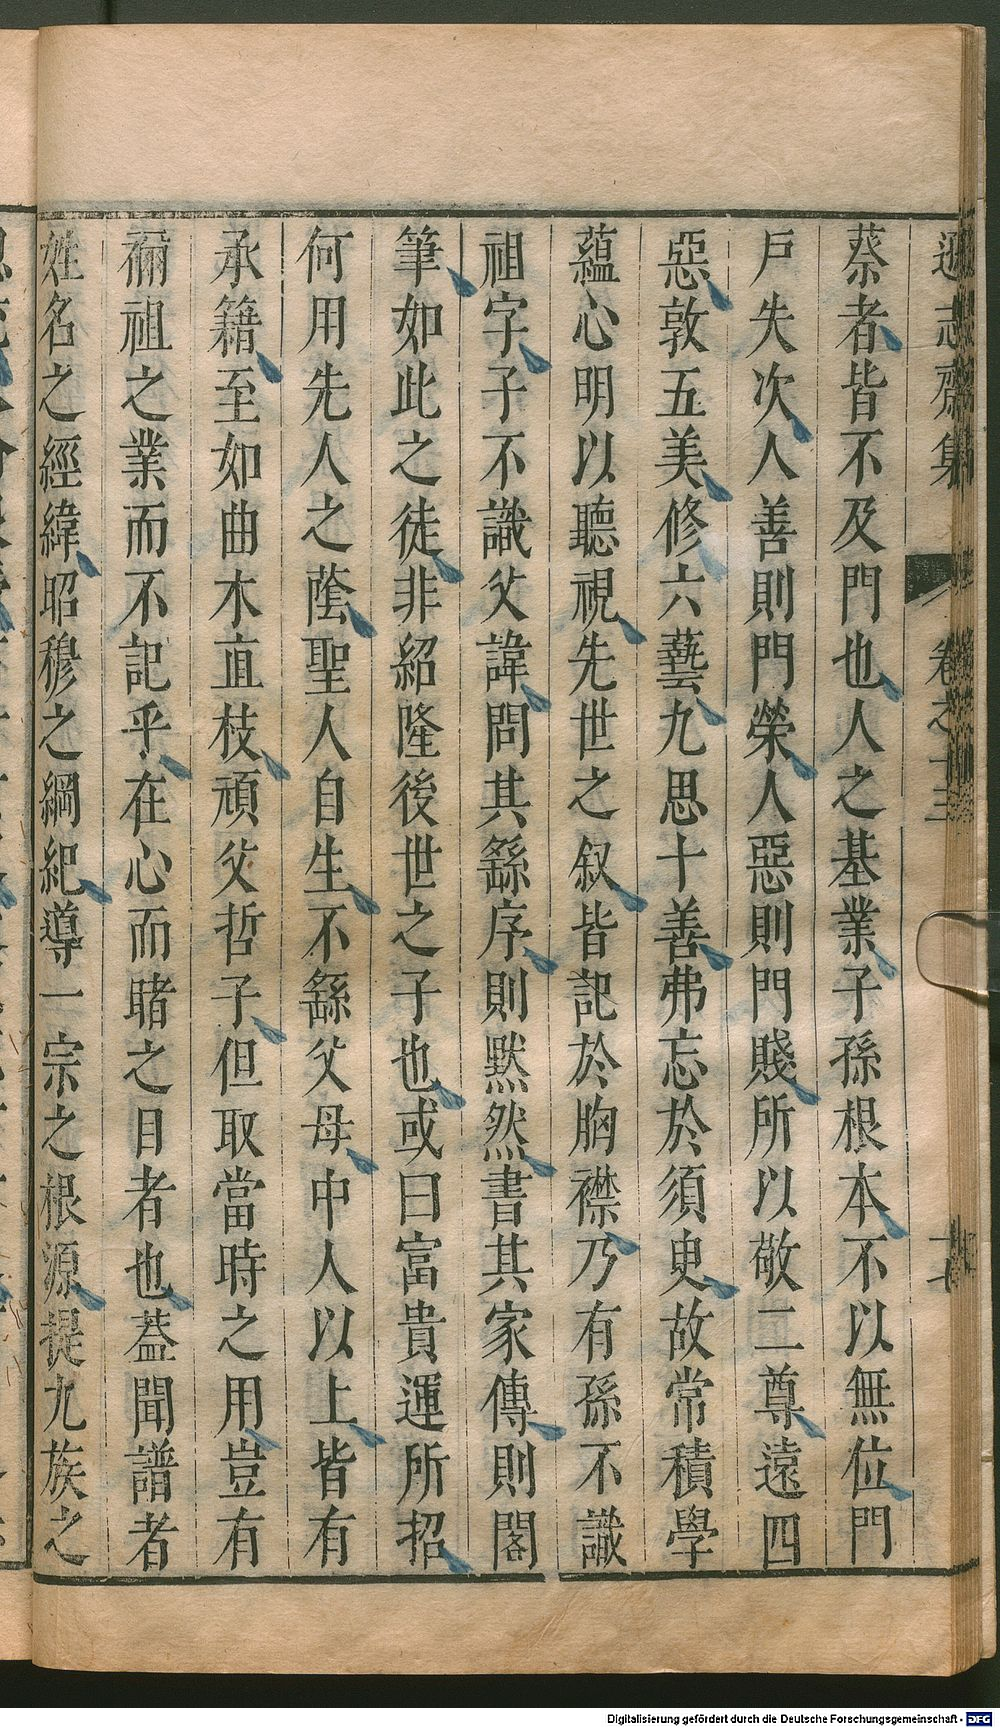 遜志齋集 卷之十三
蔡者皆不及門也人之基業子孫根本不以無位門
戶失次人善則門榮人惡則門賤所以敬二尊遠四
惡敦五美修六藝九思十善弗忘於須臾故常積學
蘊心明以聽視先世之叙皆記於胸襟乃有孫不識
祖字子不識父諱問其繇序則默然書其家傳則閣
筆如此之徒非紹隆後世之子也或曰富貴運所招
何用先人之蔭聖人自生不繇父母中人以上皆有
承籍至如曲木直枝頑父哲子但取當時之用豈有
禰祖之業而不記乎在心而睹之目者也蓋聞譜者
姓名之經緯昭穆之綱紀導一宗之根源提九族之
Digitalisierung gefördert durch die Deutsche Forschungsgemeinschaft - DFG